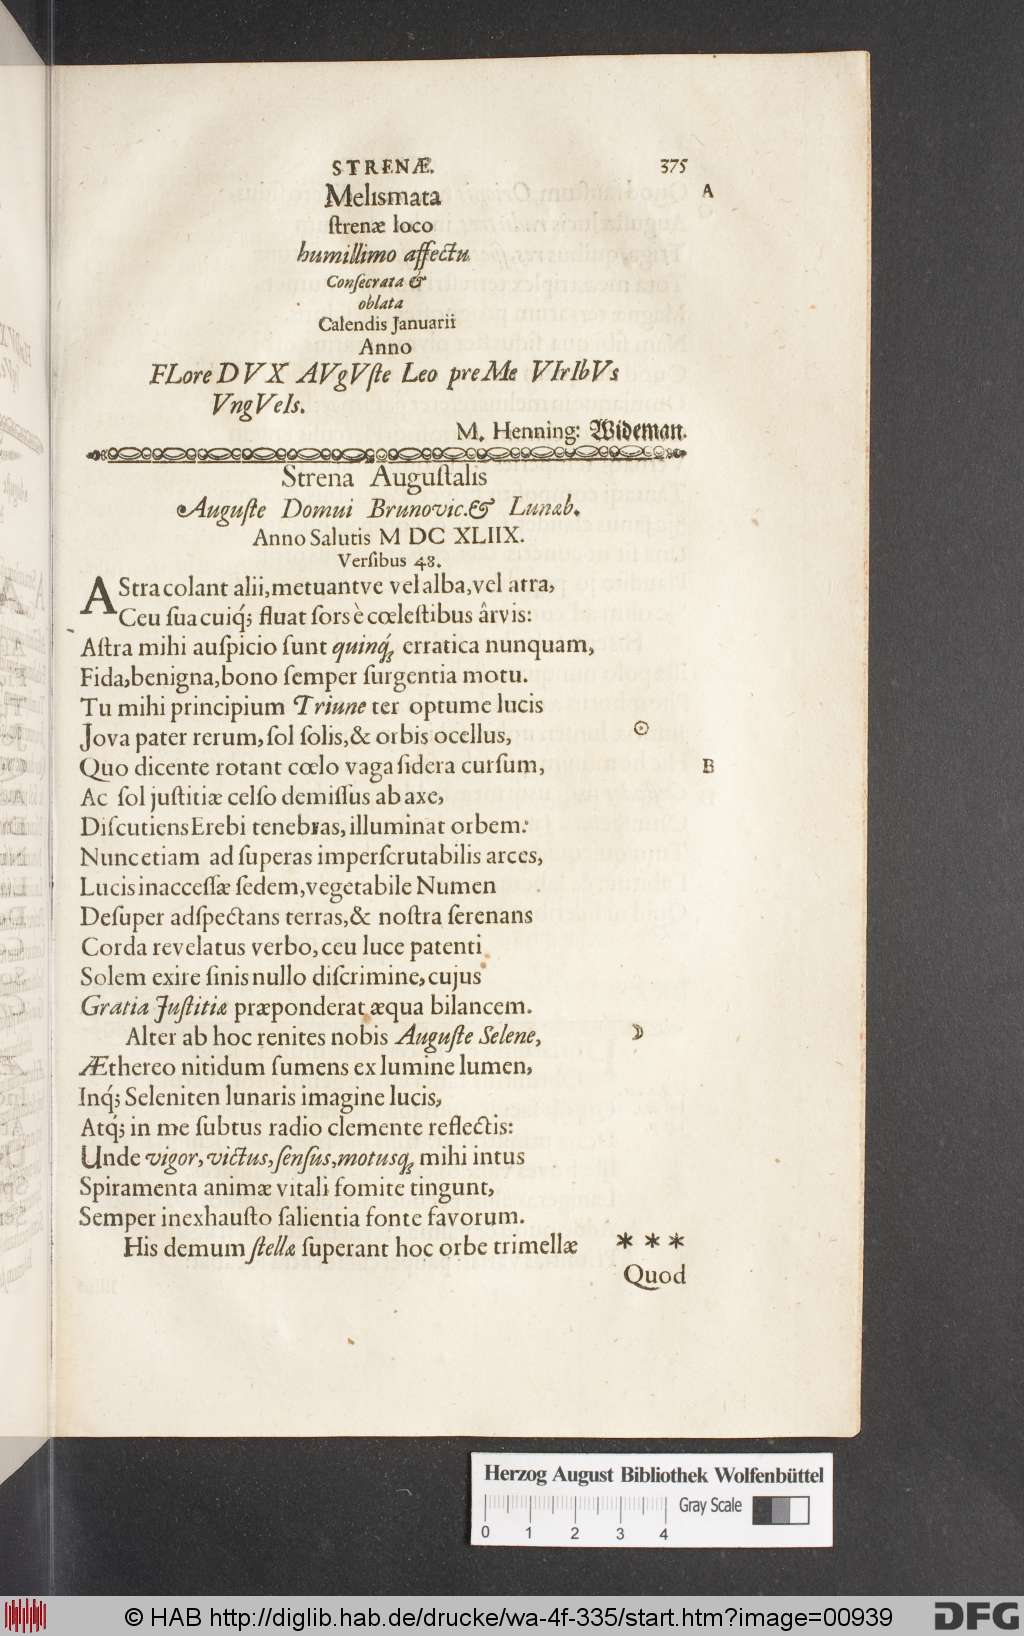 STRENÆ. 375
Melismata A
ſtrenæ loco
humillimo affectu
Conſecrata &
oblata
Calendis Januarii
Anno
FLore DVX AVgVſte Leo preMe VIrIbVs
VngVeIs.
M. Henning: Wideman.
Strena Auguſtalis
Auguſte Domui Brunovic. & Lunæb.
Anno Salutis M DC XLIIX.
Verſibus 48.
AStra colant alii, metuantve vel alba, vel atra,
Ceu ſua cuiq́; fluat ſors è cœleſtibus ârvis:
Aſtra mihi auſpicio ſunt quinq́; erratica nunquam,
Fida, benigna, bono ſemper ſurgentia motu.
Tu mihi principium Triune ter optume lucis
Jova pater rerum, ſol ſolis, & orbis ocellus, ☉
Quo dicente rotant cœlo vaga ſidera curſum, B
Ac ſol juſtitiæ celſo demiſſus ab axe,
Diſcutiens Erebi tenebras, illuminat orbem:
Nunc etiam ad ſuperas imperſcrutabilis arces,
Lucis inacceſſæ ſedem, vegetabile Numen
Deſuper adſpectans terras, & noſtra ſerenans
Corda revelatus verbo, ceu luce patenti
Solem exire ſinis nullo diſcrimine, cujus
Gratia Juſtitiæ præponderat æqua bilancem.
Alter ab hoc renites nobis Auguſte Selene, ☽
Æthereo nitidum ſumens ex lumine lumen,
Inq́; Seleniten lunaris imagine lucis,
Atq́; in me ſubtus radio clemente reflectis:
Unde vigor, victus, ſenſus, motusq; mihi intus
Spiramenta animæ vitali fomite tingunt,
Semper inexhauſto ſalientia fonte favorum.
His demum ſtellæ ſuperant hoc orbe trimellæ * * *
Quod
Herzog August Bibliothek Wolfenbüttel
Gray Scale
0 1 2 3 4
© HAB http://diglib.hab.de/drucke/wa-4f-335/start.htm?image=00939 DFG